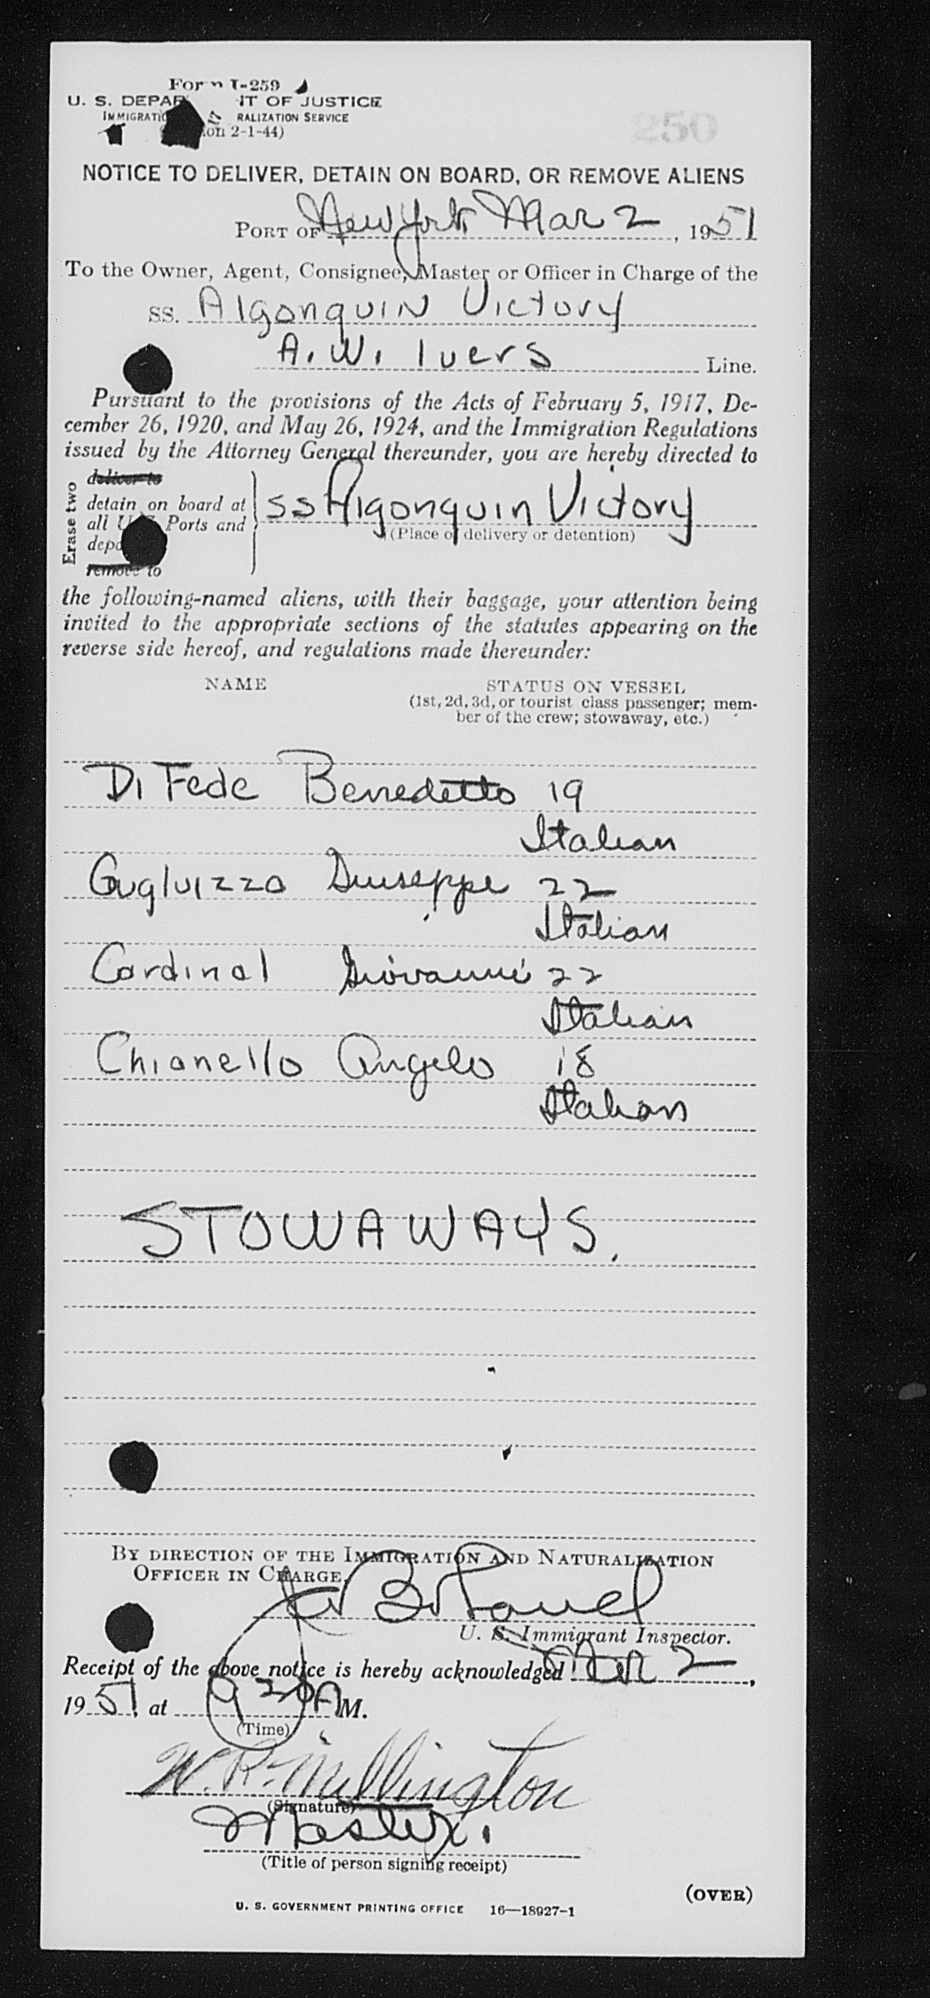 Form I-259
U. S. DEPAR IT OF JUSTICE
IMMIGRATIO RALIZATION SERVICE
on 2-1-44)
250
NOTICE TO DELIVER, DETAIN ON BOARD, OR REMOVE ALIENS
PORT OF New York Mar 2, 1951
To the Owner, Agent, Consignee, Master or Officer in Charge of the
SS. Algonquin Victory
A. W. Ivers Line.
Pursuant to the provisions of the Acts of February 5, 1917, De-
cember 26, 1920, and May 26, 1924, and the Immigration Regulations
issued by the Attorney General thereunder, you are hereby directed to
Erase two
deliver to
detain on board at
all U. S. Ports and
depo
remove to
SS Algonquin Victory
(Place of delivery or detention)
the following-named aliens, with their baggage, your attention being
invited to the appropriate sections of the statutes appearing on the
reverse side hereof, and regulations made thereunder:
NAME STATUS ON VESSEL
(1st, 2d, 3d, or tourist class passenger; mem-
ber of the crew; stowaway, etc.)
Di Fede Benedetto 19
Italian
Gugluizzo Giuseppe 22
Italian
Cardinal Giovanni 22
Italian
Chianello Angelo 18
Italian
STOWAWAYS.
BY DIRECTION OF THE IMMIGRATION AND NATURALIZATION
OFFICER IN CHARGE.
U. S. Immigrant Inspector.
Receipt of the above notice is hereby acknowledged Mar 2,
1951 at 920 A M.
(Time)
W. R. Millington
(Signature)
Master.
(Title of person signing receipt)
(OVER)
U. S. GOVERNMENT PRINTING OFFICE 16—18927-1